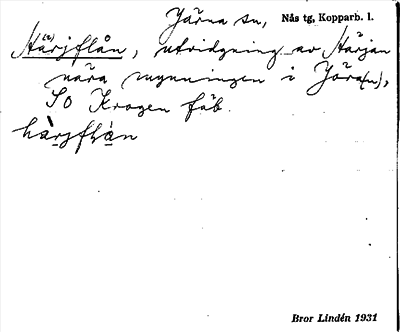 Järna sn, Nås tg, Kopparb. l.
Härjflån, utvidgning av Härjån
nära mynningen i Jöra(n),
SO Kragen fäb.
Bror Lindén 1931